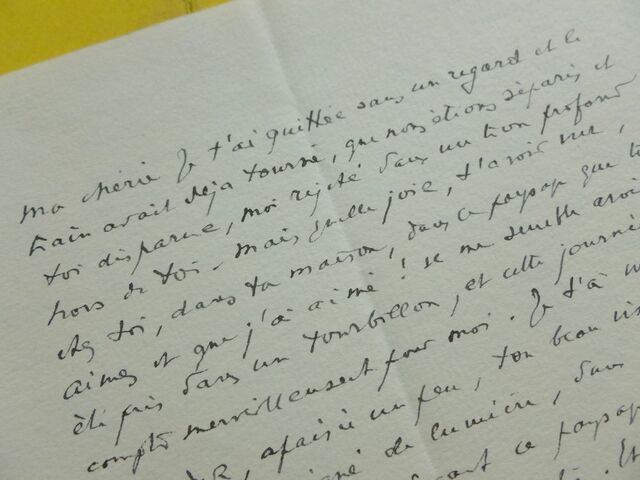 ma chérie Je t'ai quittée sans un regard et le
train avait déjà tourné, que nous étions séparés et
toi disparue, moi rejeté dans un trou profond
hors de toi - mais quelle joie, t'avoir vue,
chez toi, dans ta maison, dans ce paysage que tu
aimes et que j'ai aimé! Je me semble avoir
été pris dans un tourbillon, et cette journée
compte merveilleusement pour moi. Je t'ai
apaisée un peu, ton beau
de lumière, dans
ce paysage
Et